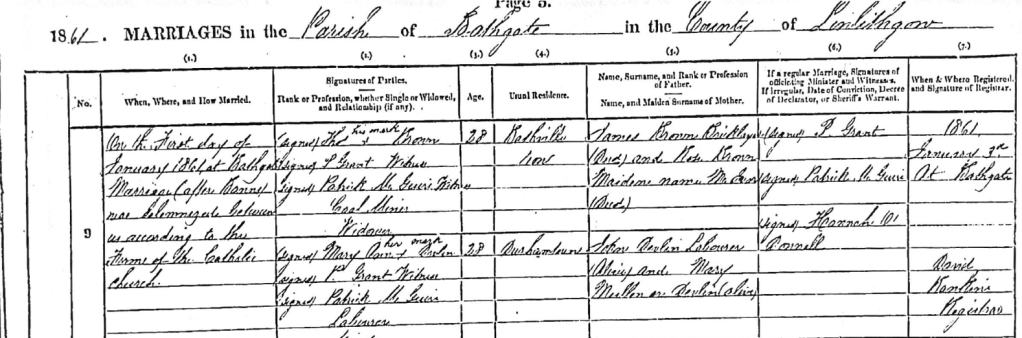 Page 5.
1861. MARRIAGES in the Parish of Bathgate in the County of Linlithgow
(1.) (2.) (3.) (4.) (5.) (6.) (7.)
No.
When, Where, and How Married.
Signatures of Parties.
Rank or Profession, whether Single or Widowed,
and Relationship (if any).
Age.
Usual Residence.
Name, Surname, and Rank or Profession
of Father.
Name, and Maiden Surname of Mother.
If a regular Marriage, Signatures of
officiating Minister and Witnesses.
If irregular, Date of Conviction, Decree
of Declarator, or Sheriff's Warrant.
When & Where Registered,
and Signature of Registrar.
9
On the First day of
January 1861, at Bathgate
Marriage (after Banns)
was solemnized between
us according to the
Forms of the Catholic
Church.
his mark
(signed) Thos x Brown
(signed) P Grant Witness
(signed) Patrick Mc Guire Witness
Coal Miner
Widower
her mark
(signed) Mary Ann x Devlin
(signed) P. Grant Witness
(signed) Patrick Mc Guire
Labourer
28
28
Bathville
Row
Durhamtown
James Brown
(Dead) and Rose Brown
Maiden name
(Dead)
John Devlin Labourer
(Alive) and Mary
Devlin (alive)
(signed) P Grant
(signed) Patrick Mc Guire
(signed) Hannah O'
Donnell
1861
January 3rd
At Bathgate
David
Rankine
Registrar